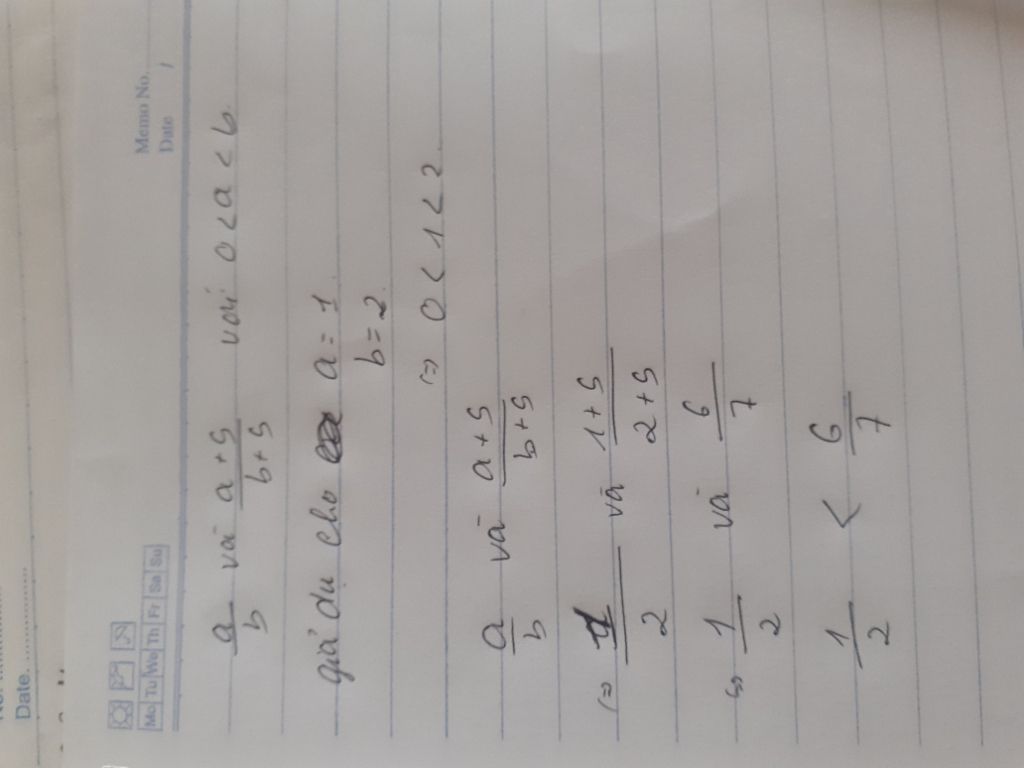 Date
Memo No.
Date /
Mo Tu We Th Fr Sa Su
a/b và a+5/b+5 với 0 < a < b
giả dụ cho a = 1
b = 2
=> 0 < 1 < 2
a/b và a+5/b+5
=> 1/2 và 1+5/2+5
=> 1/2 và 6/7
1/2 < 6/7